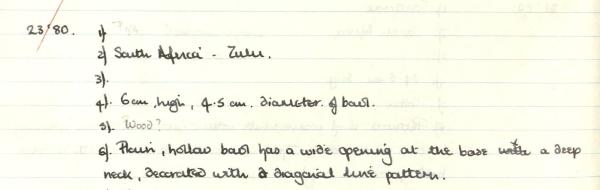 23'80. 1)
2) South Africa - Zulu.
3).
4). 6cm, high, 4.5 cm. diameter of bowl.
5). Wood?
6). Plain, hollow bowl has a wide opening at the base with a deep
neck, decorated with a diagonal line pattern.